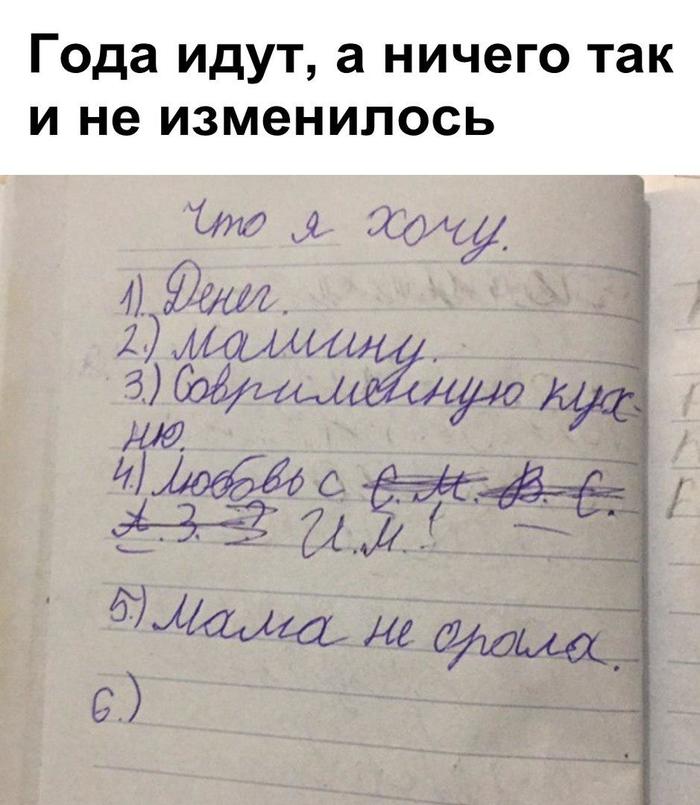 Года идут, а ничего так
и не изменилось
Что я хочу.
1). Денег.
2.) машину.
3.) Совриме́нную кух-
ню.
4.) Любовь с С. М. В. С.
А. З. И.М.!
5.) Мама не орала.
6.)